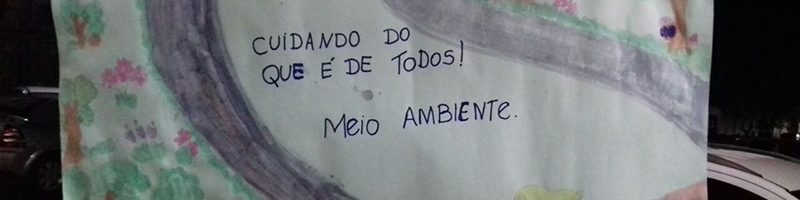 CUIDANDO DO
QUE É DE TODOS!
MEIO AMBIENTE.